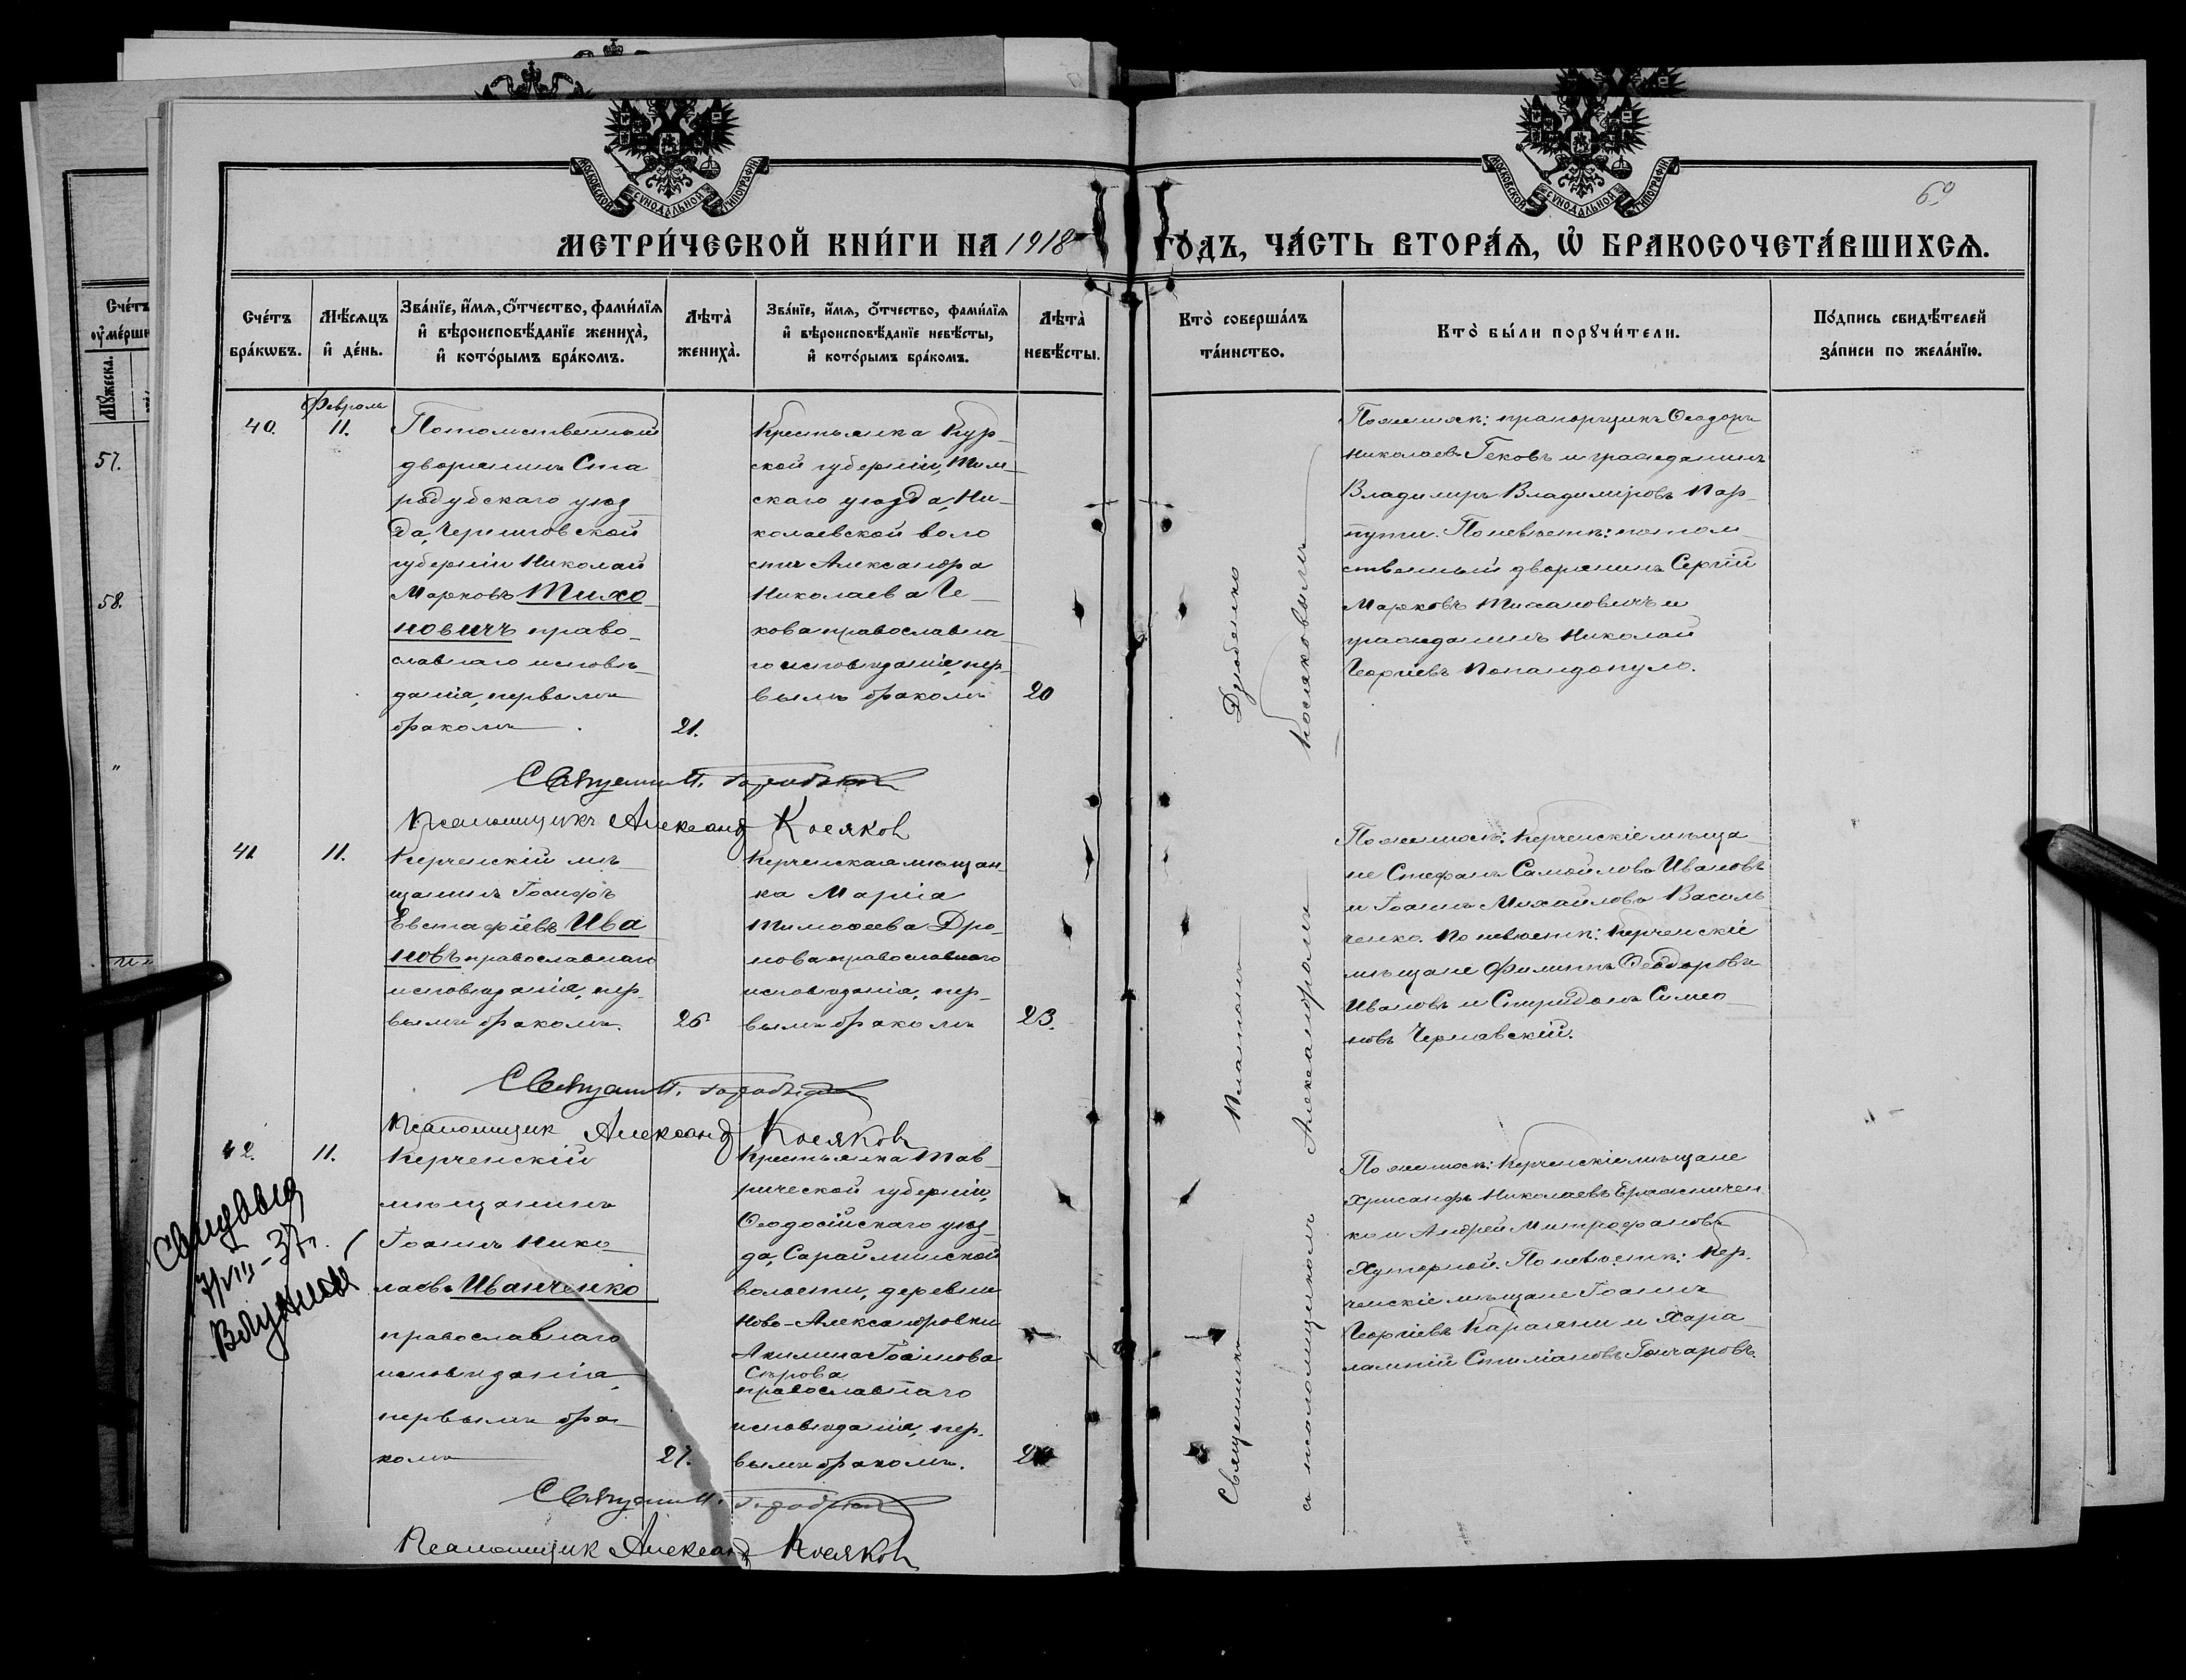 МОСКОВСКОЙ СѴНОДАЛЬНОЙ ТИПОГРАФІИ
МОСКОВСКОЙ СѴНОДАЛЬНОЙ ТИПОГРАФІИ
МЕТРИ́ЧЕСКОЙ КНИ́ГИ НА 1918 ГО́ДЪ, ЧА́СТЬ ВТОРА́Ѧ, Ѡ҆ БРАКОСОЧЕТА́ВШИХСѦ.
Сче́тъ
бра́кѡвъ.
Мѣ́сѧцъ
и҆ де́нь.
Зва́нїе, и҆́мѧ, ѻ҆́тчество, фами́лїѧ
и҆ вѣроисповѣ́данїе жениха̀,
и҆ кото́рымъ бра́комъ.
Лѣта̀
жениха̀.
Зва́нїе, и҆́мѧ, ѻ҆́тчество, фами́лїѧ
и҆ вѣроисповѣ́данїе невѣ́сты,
и҆ кото́рымъ бра́комъ.
Лѣта̀
невѣ́сты.
Кто̀ соверша́лъ
та́инство.
Кто̀ бы́ли порꙋчи́тели.
По́дпись свидѣ́телей
за́писи по жела́нїю.
Сче́тъ
57.
58.
40.
Февраль
11.
Потомственный
дворянинъ Ста
родубскаго уѣз
да, Черниговской
губерніи Николай
Марковъ Тихо
новичъ право-
славнаго исповѣ-
данія, первымъ
бракомъ
21.
Крестьянка Кур-
ской губерніи, Тим-
скаго уѣзда, Ни-
колаевской воло
сти Александра
Николаева Ге-
кова православна-
го исповѣданія, пер-
вымъ бракомъ
20
По женихѣ: прапорщикъ Ѳеодоръ
Николаевъ Гековъ и гражданинъ
Владиміръ Владиміровъ Пор-
пути. По невѣстѣ: потом-
ственный дворянинъ Сергій
Марковъ Тихановичъ и
гражданинъ Николай
Георгіевъ Попандопуло.
Псаломщикъ Александ Косяков
41
11.
Керченскій мѣ-
щанинъ Іосифъ
Евстафіевъ Ива
новъ православнаго
исповѣданія, пер-
вымъ бракомъ.
26
Керченская мѣщан-
ка Марія
Тимоѳеева Дро-
нова православнаго
исповѣданія, пер-
вымъ бракомъ
23.
По женихѣ: Керченскіе мѣща-
не Стефанъ Самойловъ Ивановъ
и Іоаннъ Михайловъ Василь-
ченко. По невѣстѣ: Керченскіе
мѣщане Филиппъ Ѳеодоровъ
Ивановъ и Спиридонъ Симео-
новъ Чернавскій.
Псаломщик Александ Косяков
42.
11.
Керченскій
мѣщанинъ
Іоаннъ Нико-
лаевъ Иванченко
православнаго
исповѣданія,
первымъ бра-
комъ
27.
Крестьянка Тав-
рической губерніи,
Ѳеодосійскаго уѣз-
да, Сарайминской
волости, деревни
Ново-Александровки
Акилина Іоаннова
Сѣрова
православнаго
исповѣданія, пер-
вымъ бракомъ.
По женихѣ: Керченскіе мѣщане
Хрисанфъ Николаевъ Бражничен-
ко и Андрей Митрофановъ
Хуторной. По невѣстѣ: Кер-
ченскіе мѣщане Іоаннъ
Георгіевъ Караяни и Хара-
лампій Стиліановъ Гончаровъ.
Псаломщик Александ Косяков
Священникъ Платонъ Дзюбенко
съ псаломщикомъ Александромъ Косяковымъ